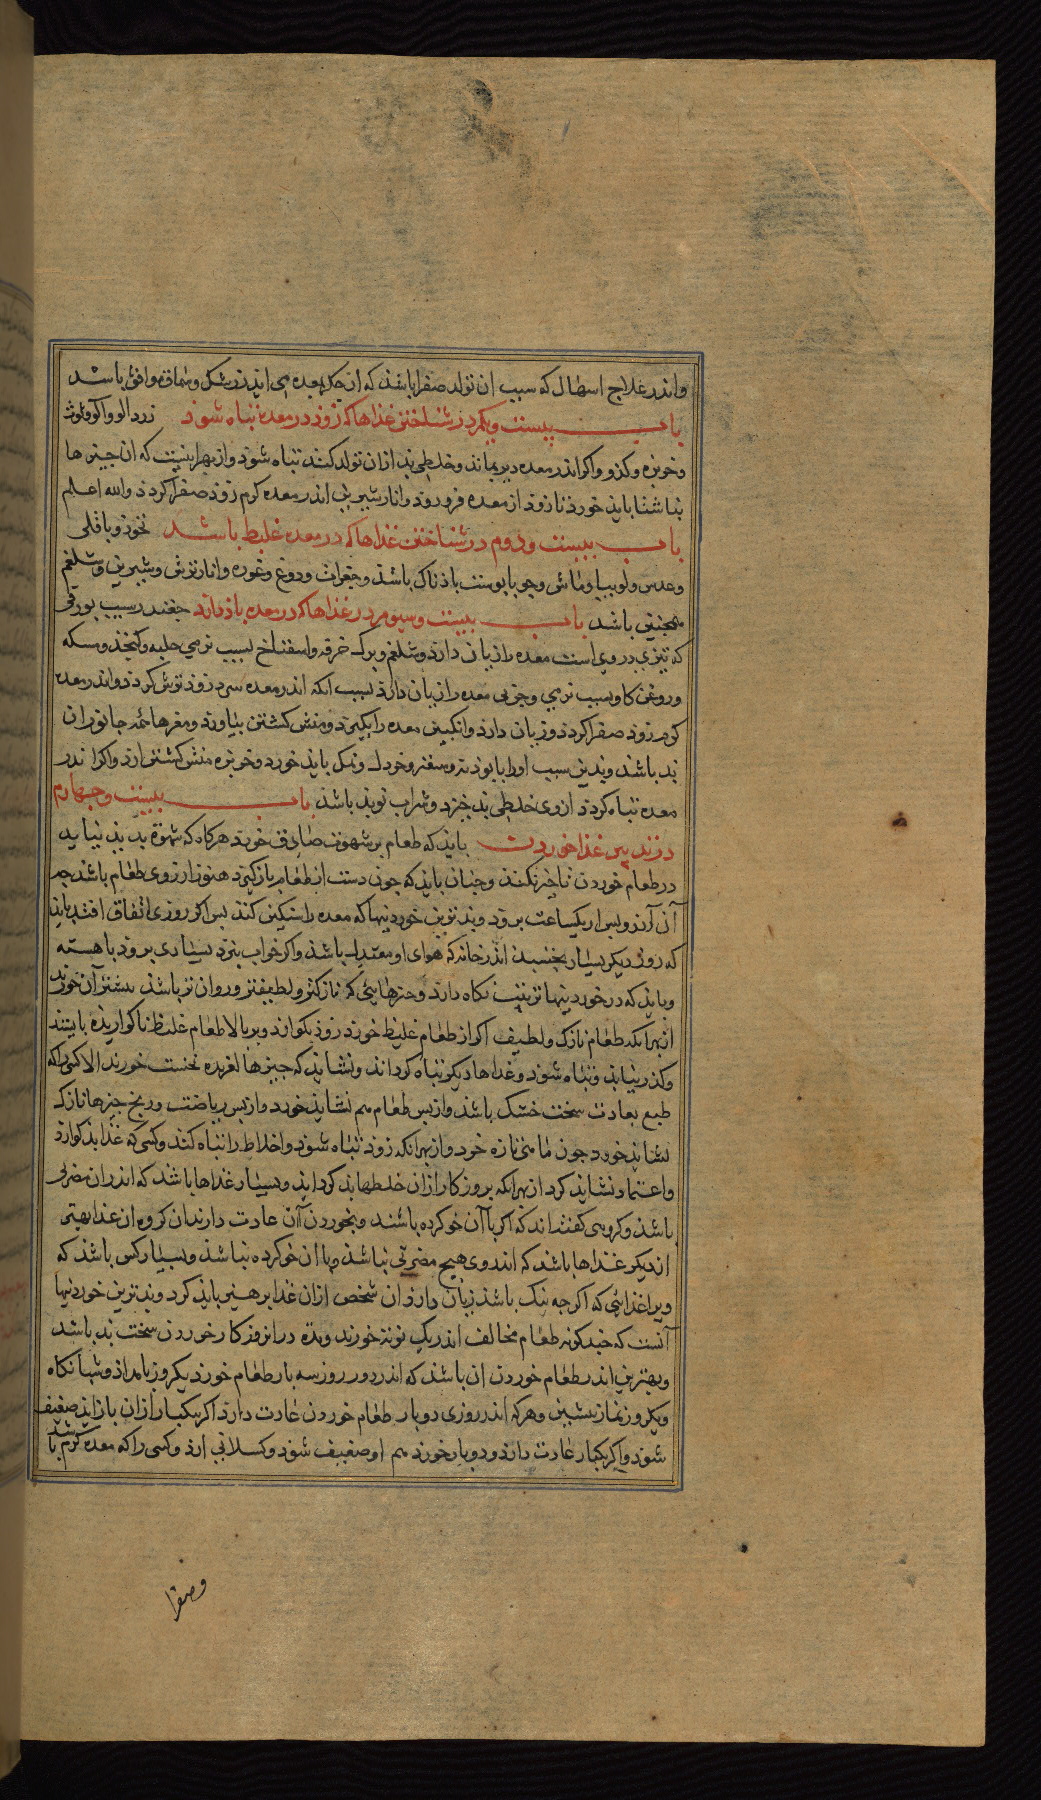 واندر علاج اسهال که سبب ان تولد صفرا باشذ که از جکر بمعده می ایذ زرشک و سماق موافق باشد
باب بیست ویکم در شناختن غذاها که زوذ در معده تباه شوذ زردالو واکر توث
وخربزه وکذو واکر اندر معده دیر بماند وخلطی بذ ازان تولد کند تباه شوذ واز بهر اینست که ان جیزها
بناشتا بایذ خورد تا زوذ از معده فروروذ وانار شیرین اندر معده کرم زوذ صفرا کردد والله اعلم
باب بیست ودوم در شناختن غذاها که در معده غلیظ باشد نخوذ وباقلی
وعدس ولوبیا وماش وجو باپوست باذناک باشذ وجغرات ودوغ وغوره وانار ترش وشیرین وشلغم
همجنین باشد باب بیست وسیوم در غذاها که در معده باذ دارد جغندر سبب بورقی
که تیزی دروی است معده را زیان دارد وشلغم وبرک خرفه واسفناخ بسبب نرمی حلبه وکنجذ ومسکه
وروغن کاو بسبب نرمی وجربی معده را زیان دارد بسبب انکه اندر معده سرد زوذ ترش کردد واندر معده
کرم زوذ صفرا کردد وزیان دارد وانکبین معده را بکیرد ومنش کشتن بیاورد ومغزها همه جانوران
بد باشد وبدین سبب اورا با پودنه وسعتر وخردل ونمک بایذ خورد وخربزه منش کشتن ارد واکر اندر
معده تباه کردد ازوی خلطی بذ خیزد وشراب نو بذ باشد باب بیست وجهارم
در تدبیر غذا خوردن بایذ که طعام بر شهوت صادق خورد هرکاه که شهوة بدید بیاید
در طعام خوردن تاخیر نکند وجنان بایذ که جون دست از طعام بازکیرد هنوز ارزوی طعام باشد جه
آن آرزو پس از یکساعت برود وبذترین خوردنیها که معده را سنکین کند پس اکر روزی اتفاق افتد باید
که روز دیکر بسیار بخسبد اندر خانه که هوای او معتدل باشذ واکر خواب نبرد بسیاری بروذ باهسته
وبایذ که در خوردنیها ترتیب نکاه دارد وجیزهایی که نازکتر ولطیفتر وروان تر باشد بیشتر آن خورند
از بهر انکه طعام نازک ولطیف اکر از طعام غلیظ خورد زوذ بکوارد وبر بالا طعام غلیظ ناکواریذه بایستد
وکذر نیابد وتباه شوذ وغذاها دیکر تباه کرداند ونشایذ که جیزها لغزیده نخست خورند الا کسی را که
طبع بعادت سخت خشک باشذ وازپس طعام هم نشایذ خورد وازپس ریاضت ورنج جیزها نازک
نشایذ خورد جون ماهی تازه خرد واز بهر انکه زوذ تباه شوذ واخلاط را تباه کند وکسی که غذا بذ کوارد
واعتماد نشاید کرد از بهر انکه بروزکار ازان خلطها بذ کرد اید وبسیار غذاها باشذ که اندران مضرتی
باشذ وکروهی کفته اند که اکر با آن خو کرده باشند وبخوردن آن عادت دارند ان کروه ان غذا بهتر
از دیکر غذاها باشد که اندروی هیج مضرتی نباشذ وبا ان خو کرده نباشذ وبسیار کس باشذ که
ویرا غذایی که اکرجه نیک باشد زیان دارد ان شخص ازان غذا پرهیز بایذ کرد وبذترین خوردنیها
آنست که جندکونه طعام مخالف اندر یک نوبت خورند ومدة دراز وروزکار خوردن سخت بد باشد
وبهترین اندر طعام خوردن ان باشذ که اندر دو روز سه بار طعام خورد یکروز بامداذ وشبانکاه
ویکروز نماز پیشین وهرکه اندر روزی دوبار طعام خوردن عادت دارد اکر بیکبار ازان بازایذ ضعیف
شوذ واکر یکبار عادت دارد ودوبار خورد هم او ضعیف شوذ وکسلانی ارد وکسی را که معده کرم باشد
وصفرا